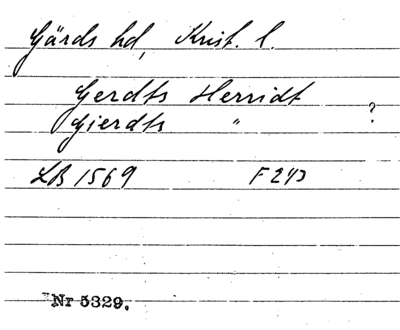 Gärds hd, Krist. l.
Gerdts Herridt
Gierdts " ?
LB 1569 F 2
Nr 5329.